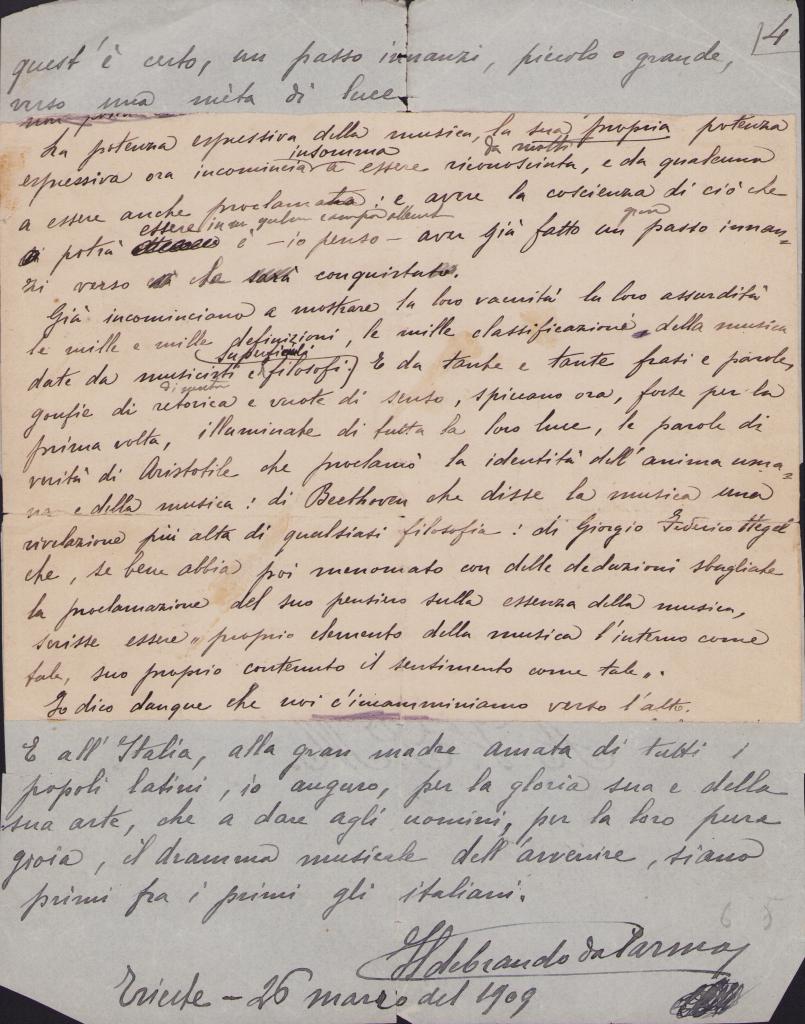 4
quest'è certo, un passo innanzi, piccolo o grande,
verso una mèta di luce
La potenza espressiva della musica, la sua propria potenza
insomma da molti
espressiva ora incomincia a essere riconosciuta, e da qualcuno
a essere anche proclamata: e avere la coscienza di ciò che
essere in un qualun
gran
potrà è - io penso - aver già fatto un passo innan=
zi verso che sarà conquistato.
Già incominciano a mostrare la loro vacuità la loro assurdità
le mille e mille definizioni, le mille classificazioni della musica
superficiali
date da musicisti e filosofi. E da tante e tante frasi e parole,
gonfie di retorica e vuote di senso, spiccano ora, forse per la
prima volta, illuminate di tutta la loro luce, le parole di
verità di Aristotile che proclamò la identità dell'anima uma=
na e della musica: di Beethoven che disse la musica una
rivelazione più alta di qualsiasi filosofia: di Giorgio Federico Hegel
che, se bene abbia poi menomato con delle deduzioni sbagliate
la proclamazione del suo pensiero sulla essenza della musica,
scrisse essere „proprio elemento della musica l'interno come
tale, suo proprio contenuto il sentimento come tale„.
Io dico dunque che noi c'incamminiamo verso l'alto.
E all'Italia, alla gran madre amata di tutti i
popoli latini, io auguro, per la gloria sua e della
sua arte, che a dare agli uomini, per la loro pura
gioia, il dramma musicale dell'avvenire, siano
primi fra i primi gli italiani.
6 5
Ildebrando da Parma
Trieste - 26 marzo del 1909